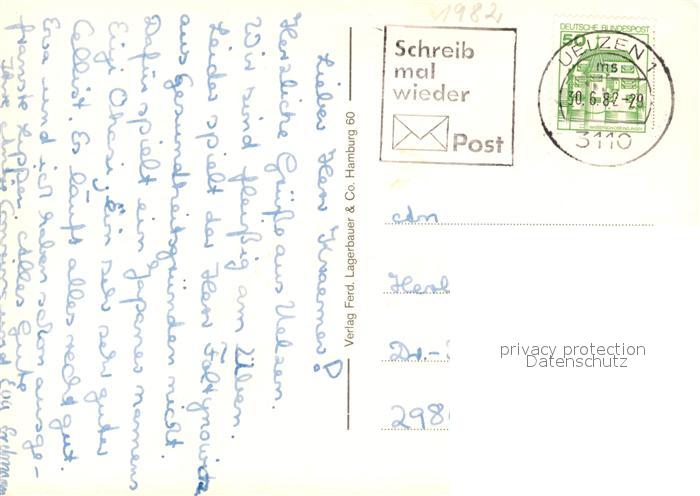 1982
Schreib
mal
wieder
Post
DEUTSCHE BUNDESPOST
50
UELZEN 1
ms
30.6.82-20
3110
Lieber Herr Kraemer!
Herzliche Grüße aus Uelzen.
Wir sind fleißig am Üben.
Leider spielt der Herr
aus Gesundheitsgründen nicht.
Dafür spielt ein Japaner namens
Eiji ein sehr sehr guter
Cellist. Es läuft alles recht gut.
Eva und ich haben schon ausge-
franste Lippen. Alles Gute
Verlag Ferd. Lagerbauer & Co. Hamburg 60
An
Dr.-
298
privacy protection
Datenschutz